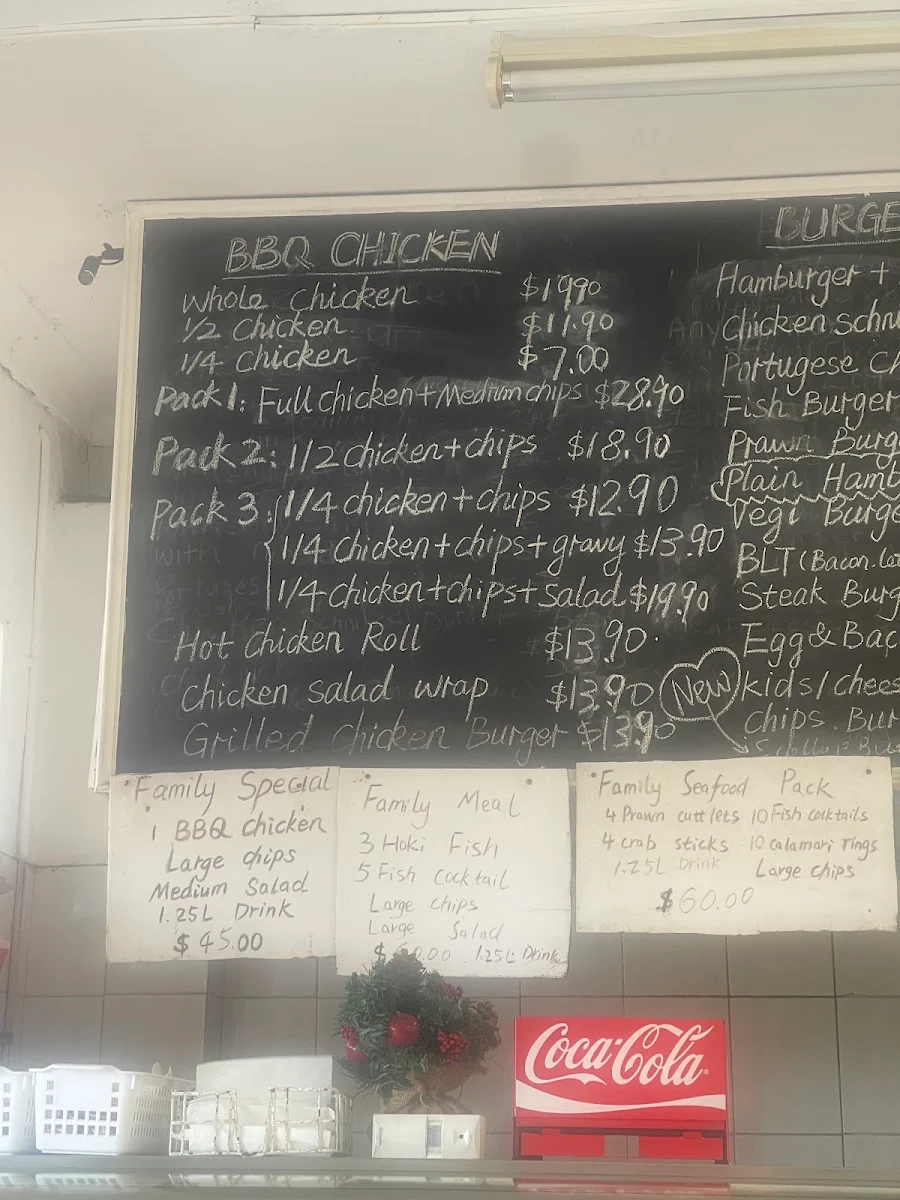 BBQ CHICKEN
Whole chicken $19.90
1/2 Chicken $11.90
1/4 Chicken $7.00
Pack 1: Full chicken + Medium chips $28.90
Pack 2: 1/2 chicken + chips $18.90
Pack 3: 1/4 chicken + chips $12.90
1/4 chicken + chips + gravy $13.90
1/4 chicken + chips + Salad $19.90
Hot chicken Roll $13.90
Chicken salad wrap $13.90
Grilled Chicken Burger $13.90
BURGE
Hamburger +
Chicken Schn
Portugese Ch
Fish Burger
Prawn Burg
Plain Hamb
Vegi Burge
BLT (Bacon.
Steak Burg
Egg & Bac
New kids/chees
chips. Bur
Family Special
1 BBQ chicken
Large chips
Medium Salad
1.25L Drink
$45.00
Family Meal
3 Hoki Fish
5 Fish cocktail
Large chips
Large Salad
1.25L Drink
Family Seafood Pack
4 Prawn cuttlets 10 Fish cocktails
4 crab sticks 10 calamari rings
1.25L Drink Large chips
$60.00
Coca-Cola